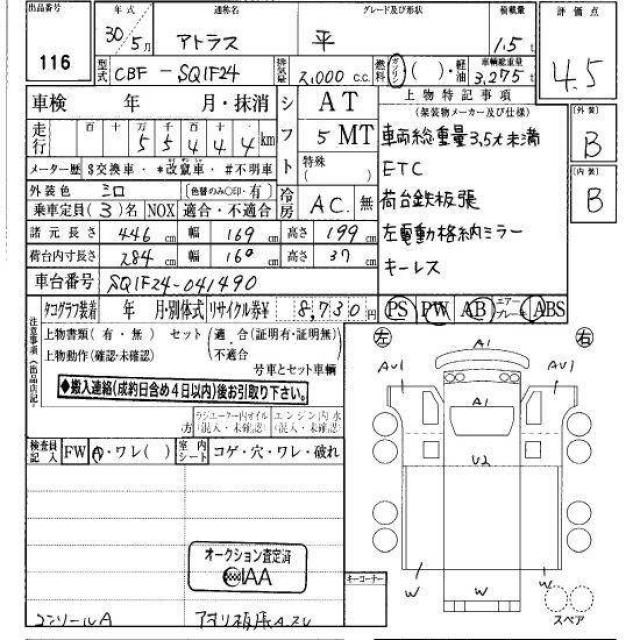 出品番号 年式 通称名 グレード及び形状 積載量 評価点
116 30/5月 アトラス 平 1.5t 4.5
型式 CBF-SQ1F24 排気量 2,000c.c. 燃料 ガソリン ( )・軽油 車輌総重量 3,275t
車検 年 月・抹消 シフト AT 上物特記事項
(架装物メーカー及び仕様)
走行 百 十 万 千 百 十 一 5 5 4 4 4 km 5 MT 車両総重量3.5t未満
メーター歴 $交換車・*改竄車・#不明車 特殊( ) ETC
外装色 シロ (色替のみ○印・有) 冷房 AC. 無 荷台鉄板張
乗車定員(3)名 NOX 適合・不適合
諸元長さ 446cm 幅 169cm 高さ 199cm 左電動格納ミラー
荷台内寸長さ 284cm 幅 160cm 高さ 37cm キーレス
車台番号 SQ1F24-041490
タコグラフ装着 年 月・別体式 リサイクル券¥ 8,730円 PS PW AB エアーブレーキ ABS
[外装] B
[内装] B
注意事項(出品店記入)
上物書類(有・無) セット(適合(証明有・証明無)
上物動作(確認・未確認) 不適合
号車とセット車輌
◆搬入連絡(成約日含め4日以内)後お引取り下さい。
方 ラジエーター内オイル(混入・未確認) エンジン内水(混入・未確認)
検査員記入 FW A・ワレ( ) 室内シート コゲ・穴・ワレ・破れ
左 右
A1
AU1 AU1
A1
U2
W W W
スペア
オークション査定済
CIAA
キーコーナー
コンソールA